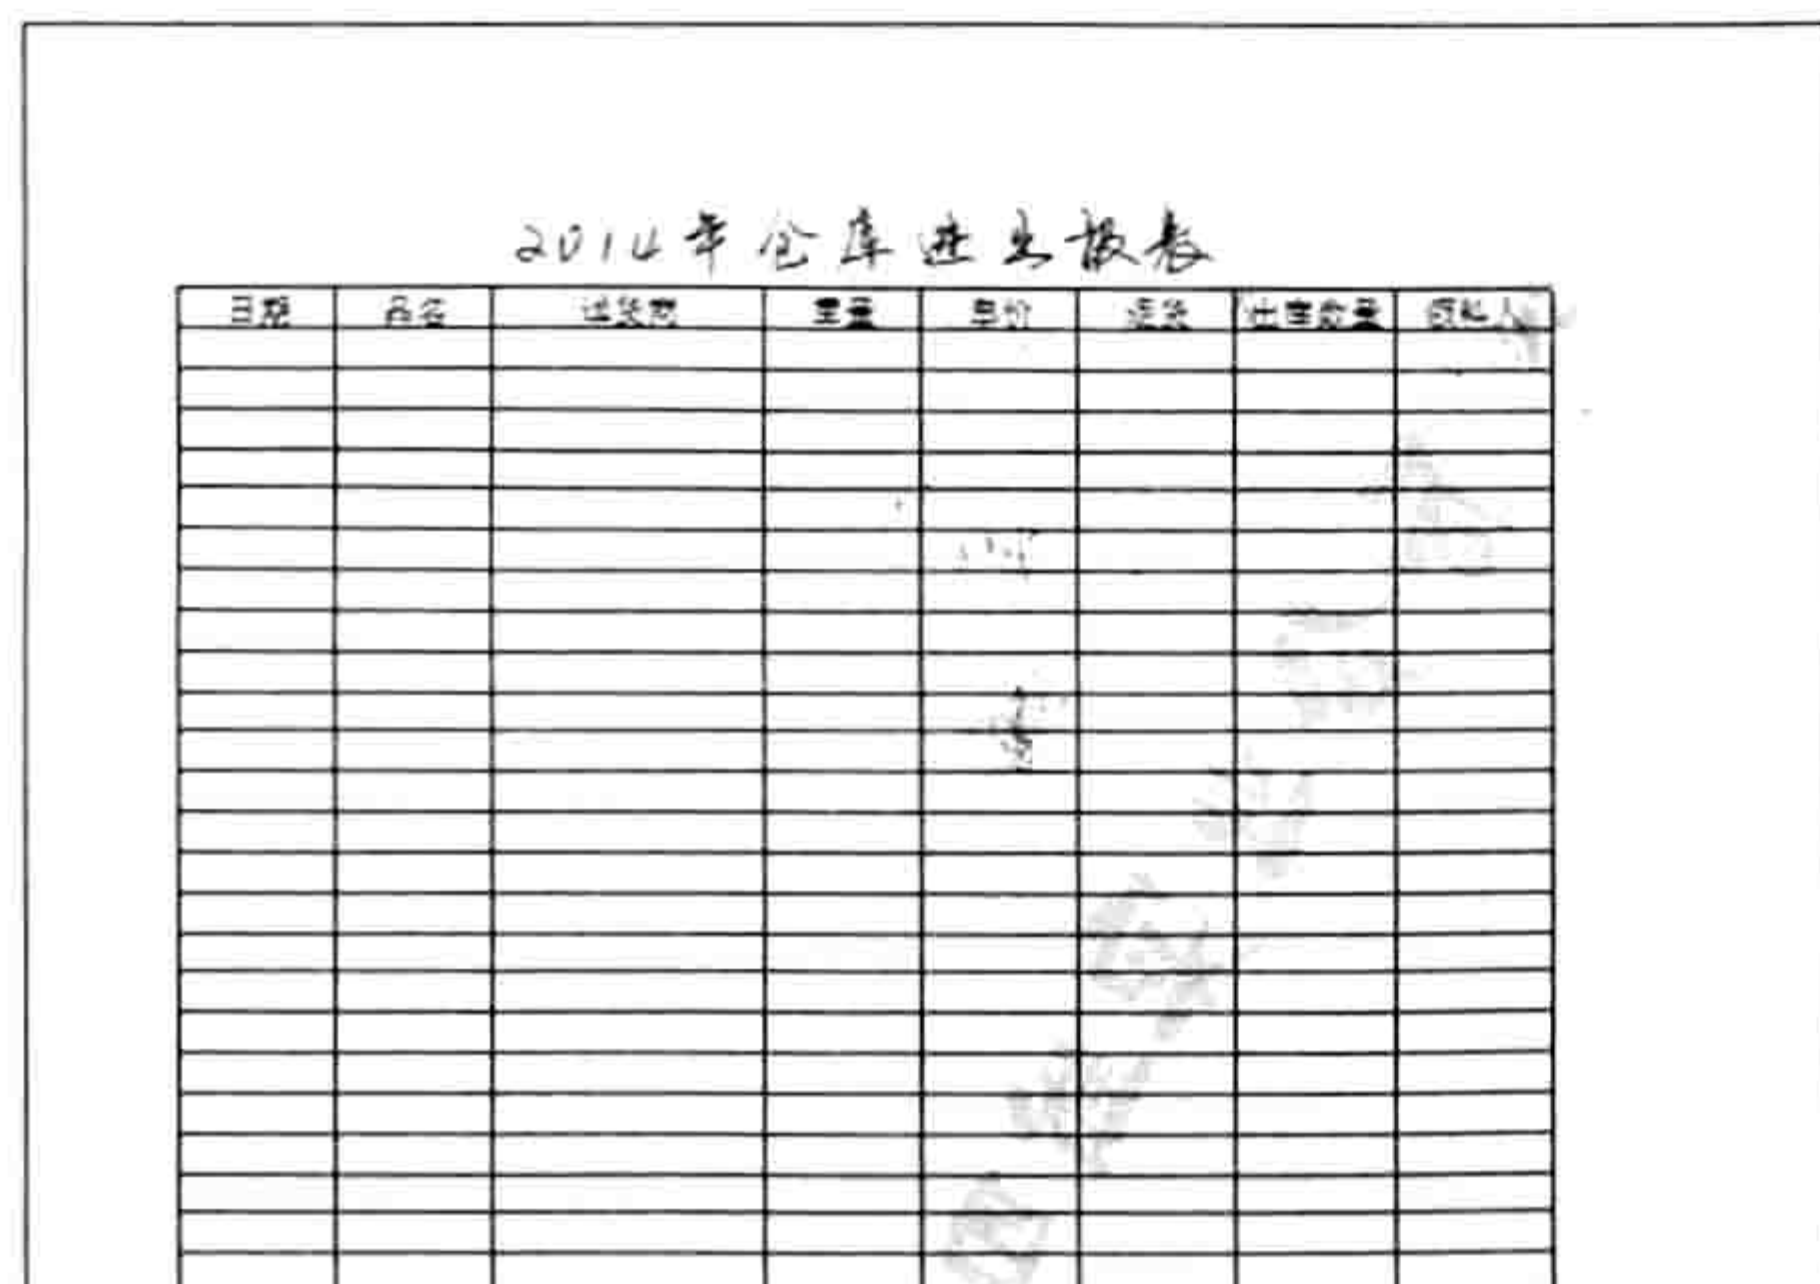 2014年仓库进出报表
日期 品名 送货商 重量 单价 退货 出库数量 领料人